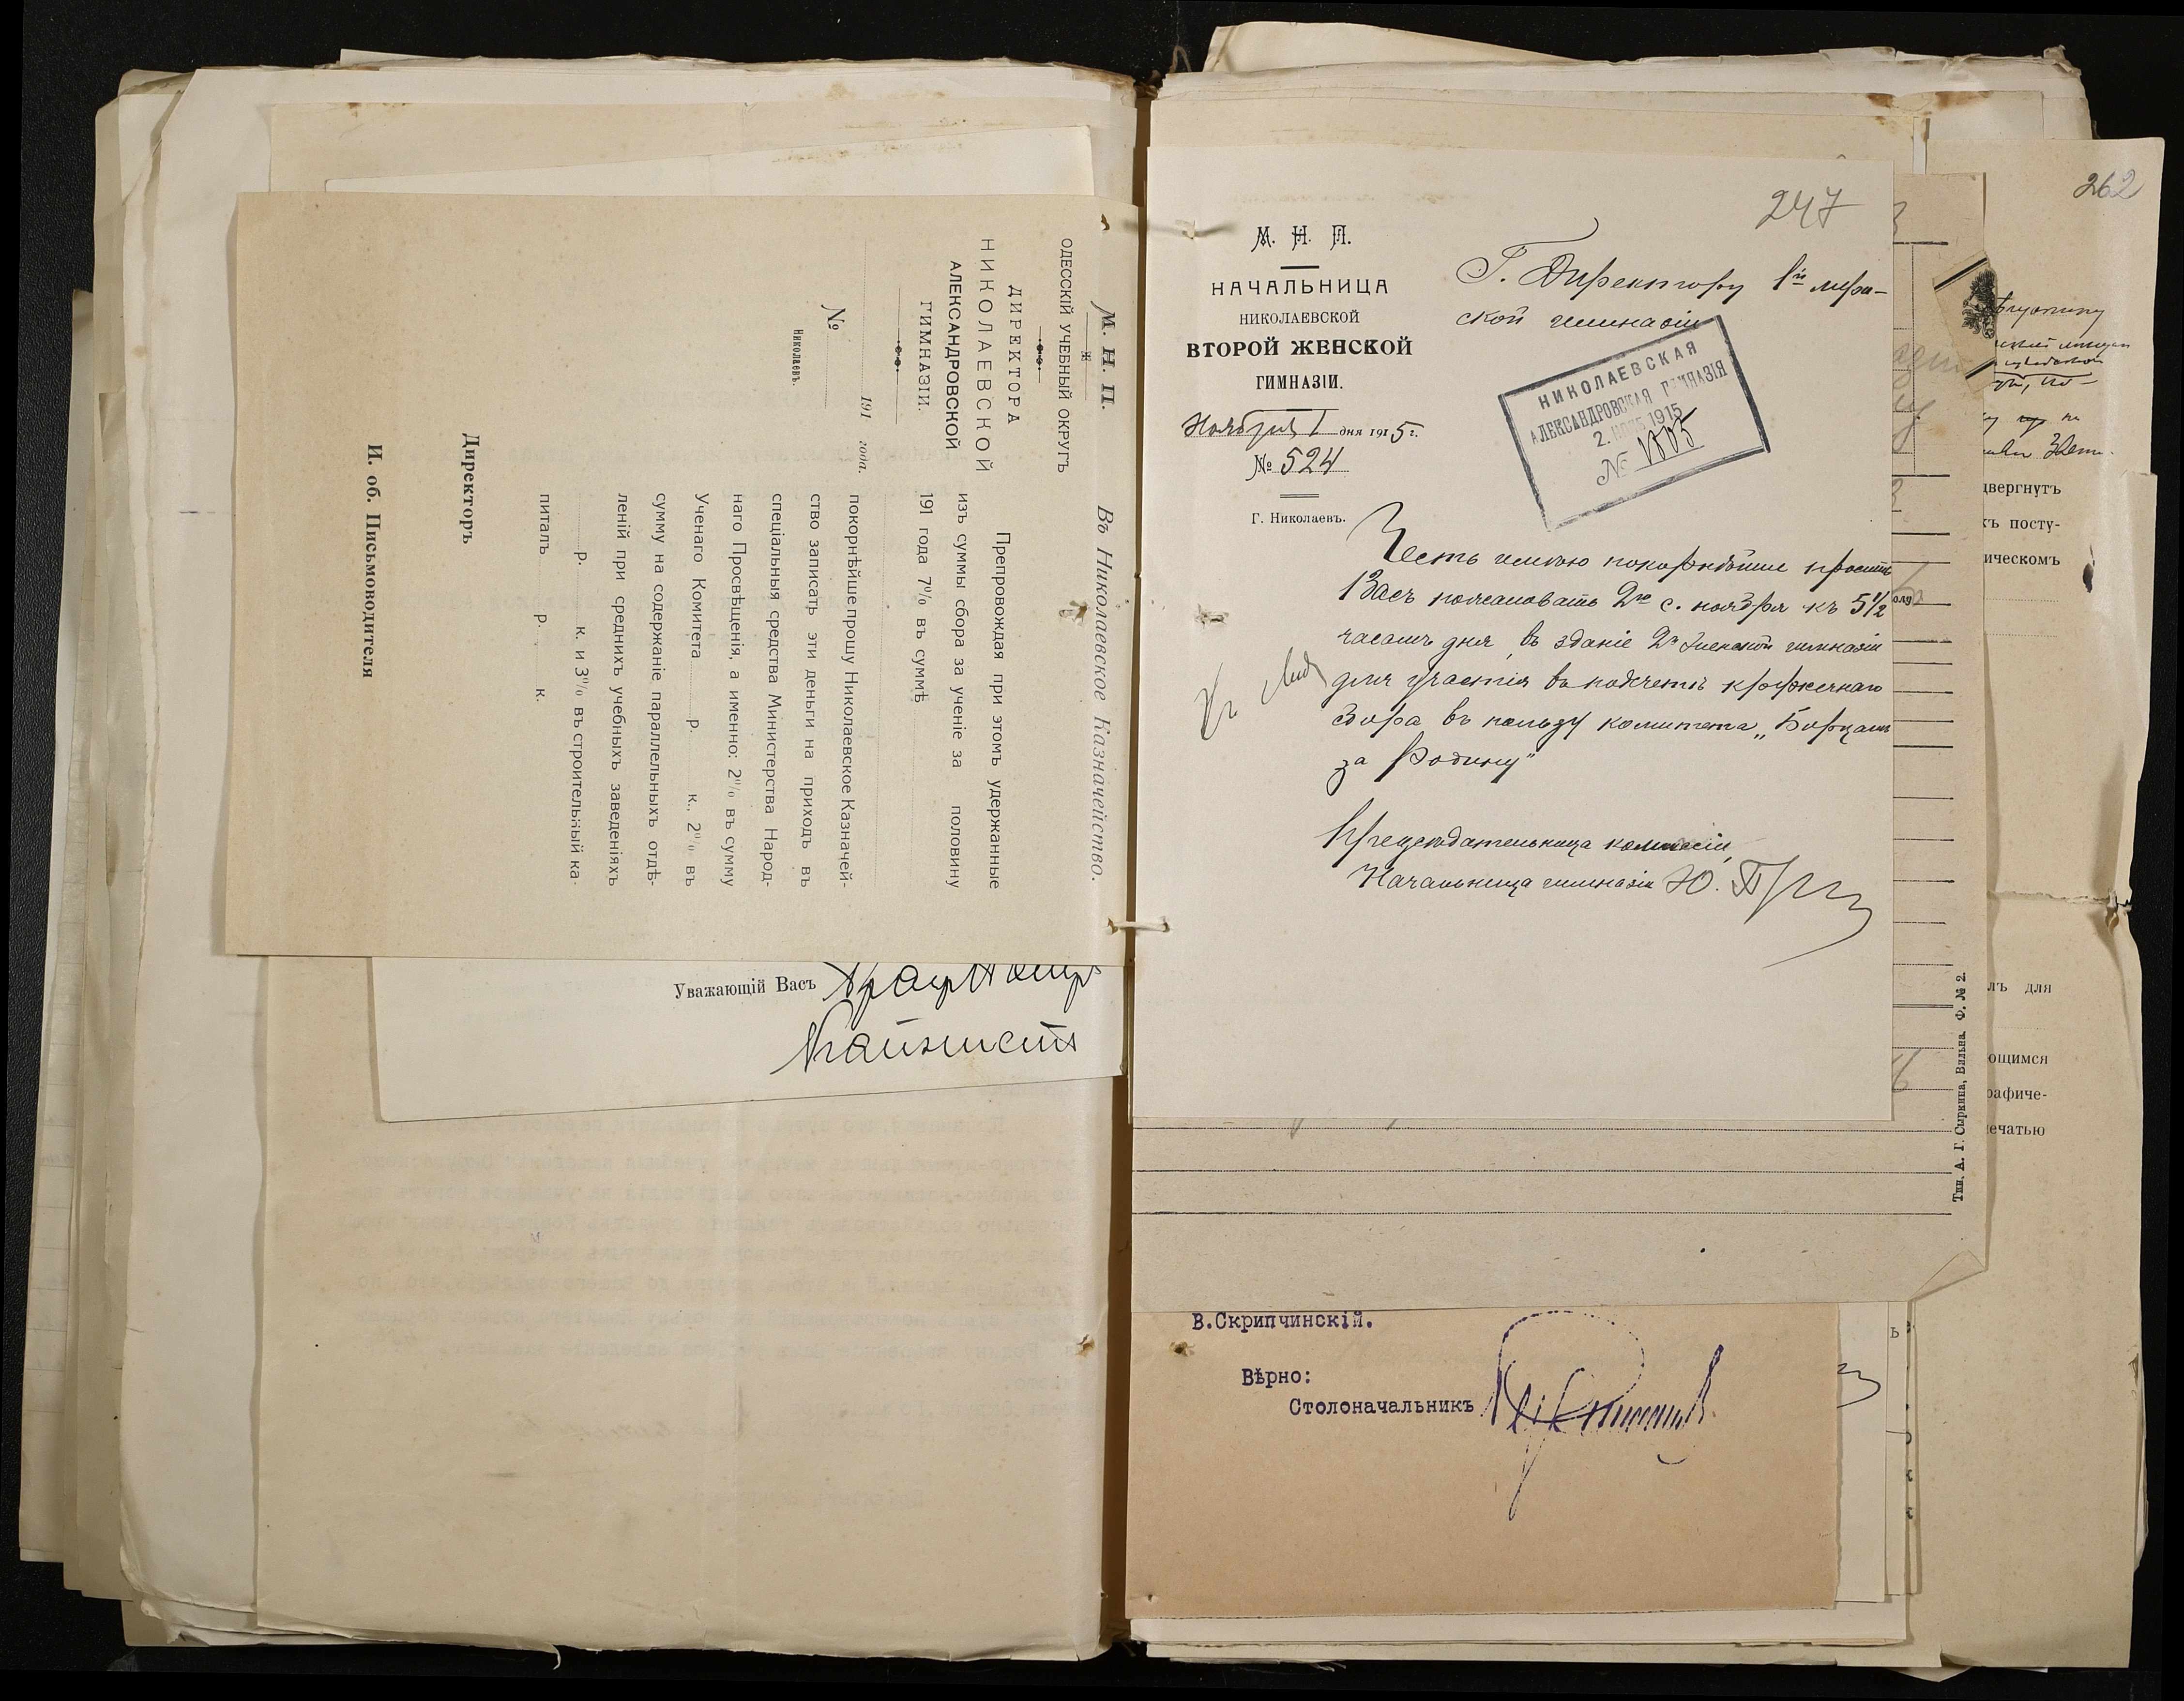 М. Н. П.
ОДЕССКІЙ УЧЕБНЫЙ ОКРУГЪ
ДИРЕКТОРА
НИКОЛАЕВСКОЙ
АЛЕКСАНДРОВСКОЙ
ГИМНАЗІИ.
191 года.
№
НИКОЛАЕВЪ.
Въ Николаевское Казначейство.
Препровождая при этомъ удержанные
изъ суммы сбора за ученіе за половину
191 года 7% въ суммѣ
покорнѣйше прошу Николаевское Казначей-
ство записать эти деньги на приходъ въ
спеціальныя средства Министерства Народ-
наго Просвѣщенія, а именно: 2% въ сумму
Ученаго Комитета р. к., 2% въ
сумму на содержаніе параллельныхъ отдѣ-
леній при среднихъ учебныхъ заведеніяхъ
р. к. и 3% въ строительный ка-
питалъ р. к.
Директоръ
И. об. Письмоводителя
Уважающій Васъ
247
М. Н. П.
НАЧАЛЬНИЦА
НИКОЛАЕВСКОЙ
ВТОРОЙ ЖЕНСКОЙ
ГИМНАЗІИ.
Ноября 1 дня 1915 г.
№ 524
Г. Николаевъ.
Г. Директору 1й муж-
ской гимназіи
НИКОЛАЕВСКАЯ
АЛЕКСАНДРОВСКАЯ ГИМНАЗІЯ
2. НОЯ 1915
№ 1805
Честь имѣю покорнѣйше просить
Васъ пожаловать 2го с. ноября къ 5 1/2
часамъ дня, въ зданіе 2й Женской гимназіи
для участія въ подсчетѣ кружечнаго
сбора въ пользу комитета „Борцамъ
за Родину"
Предсѣдательница комиссіи,
Начальница гимназіи Ю.
В.Скрипчинскій.
Вѣрно:
Столоначальникъ
Тип. А. Г. Сыркина, Вильна. Ф. № 2.
262
двергнутъ
къ посту-
ическомъ
лъ для
ющимся
рафиче-
ечатью